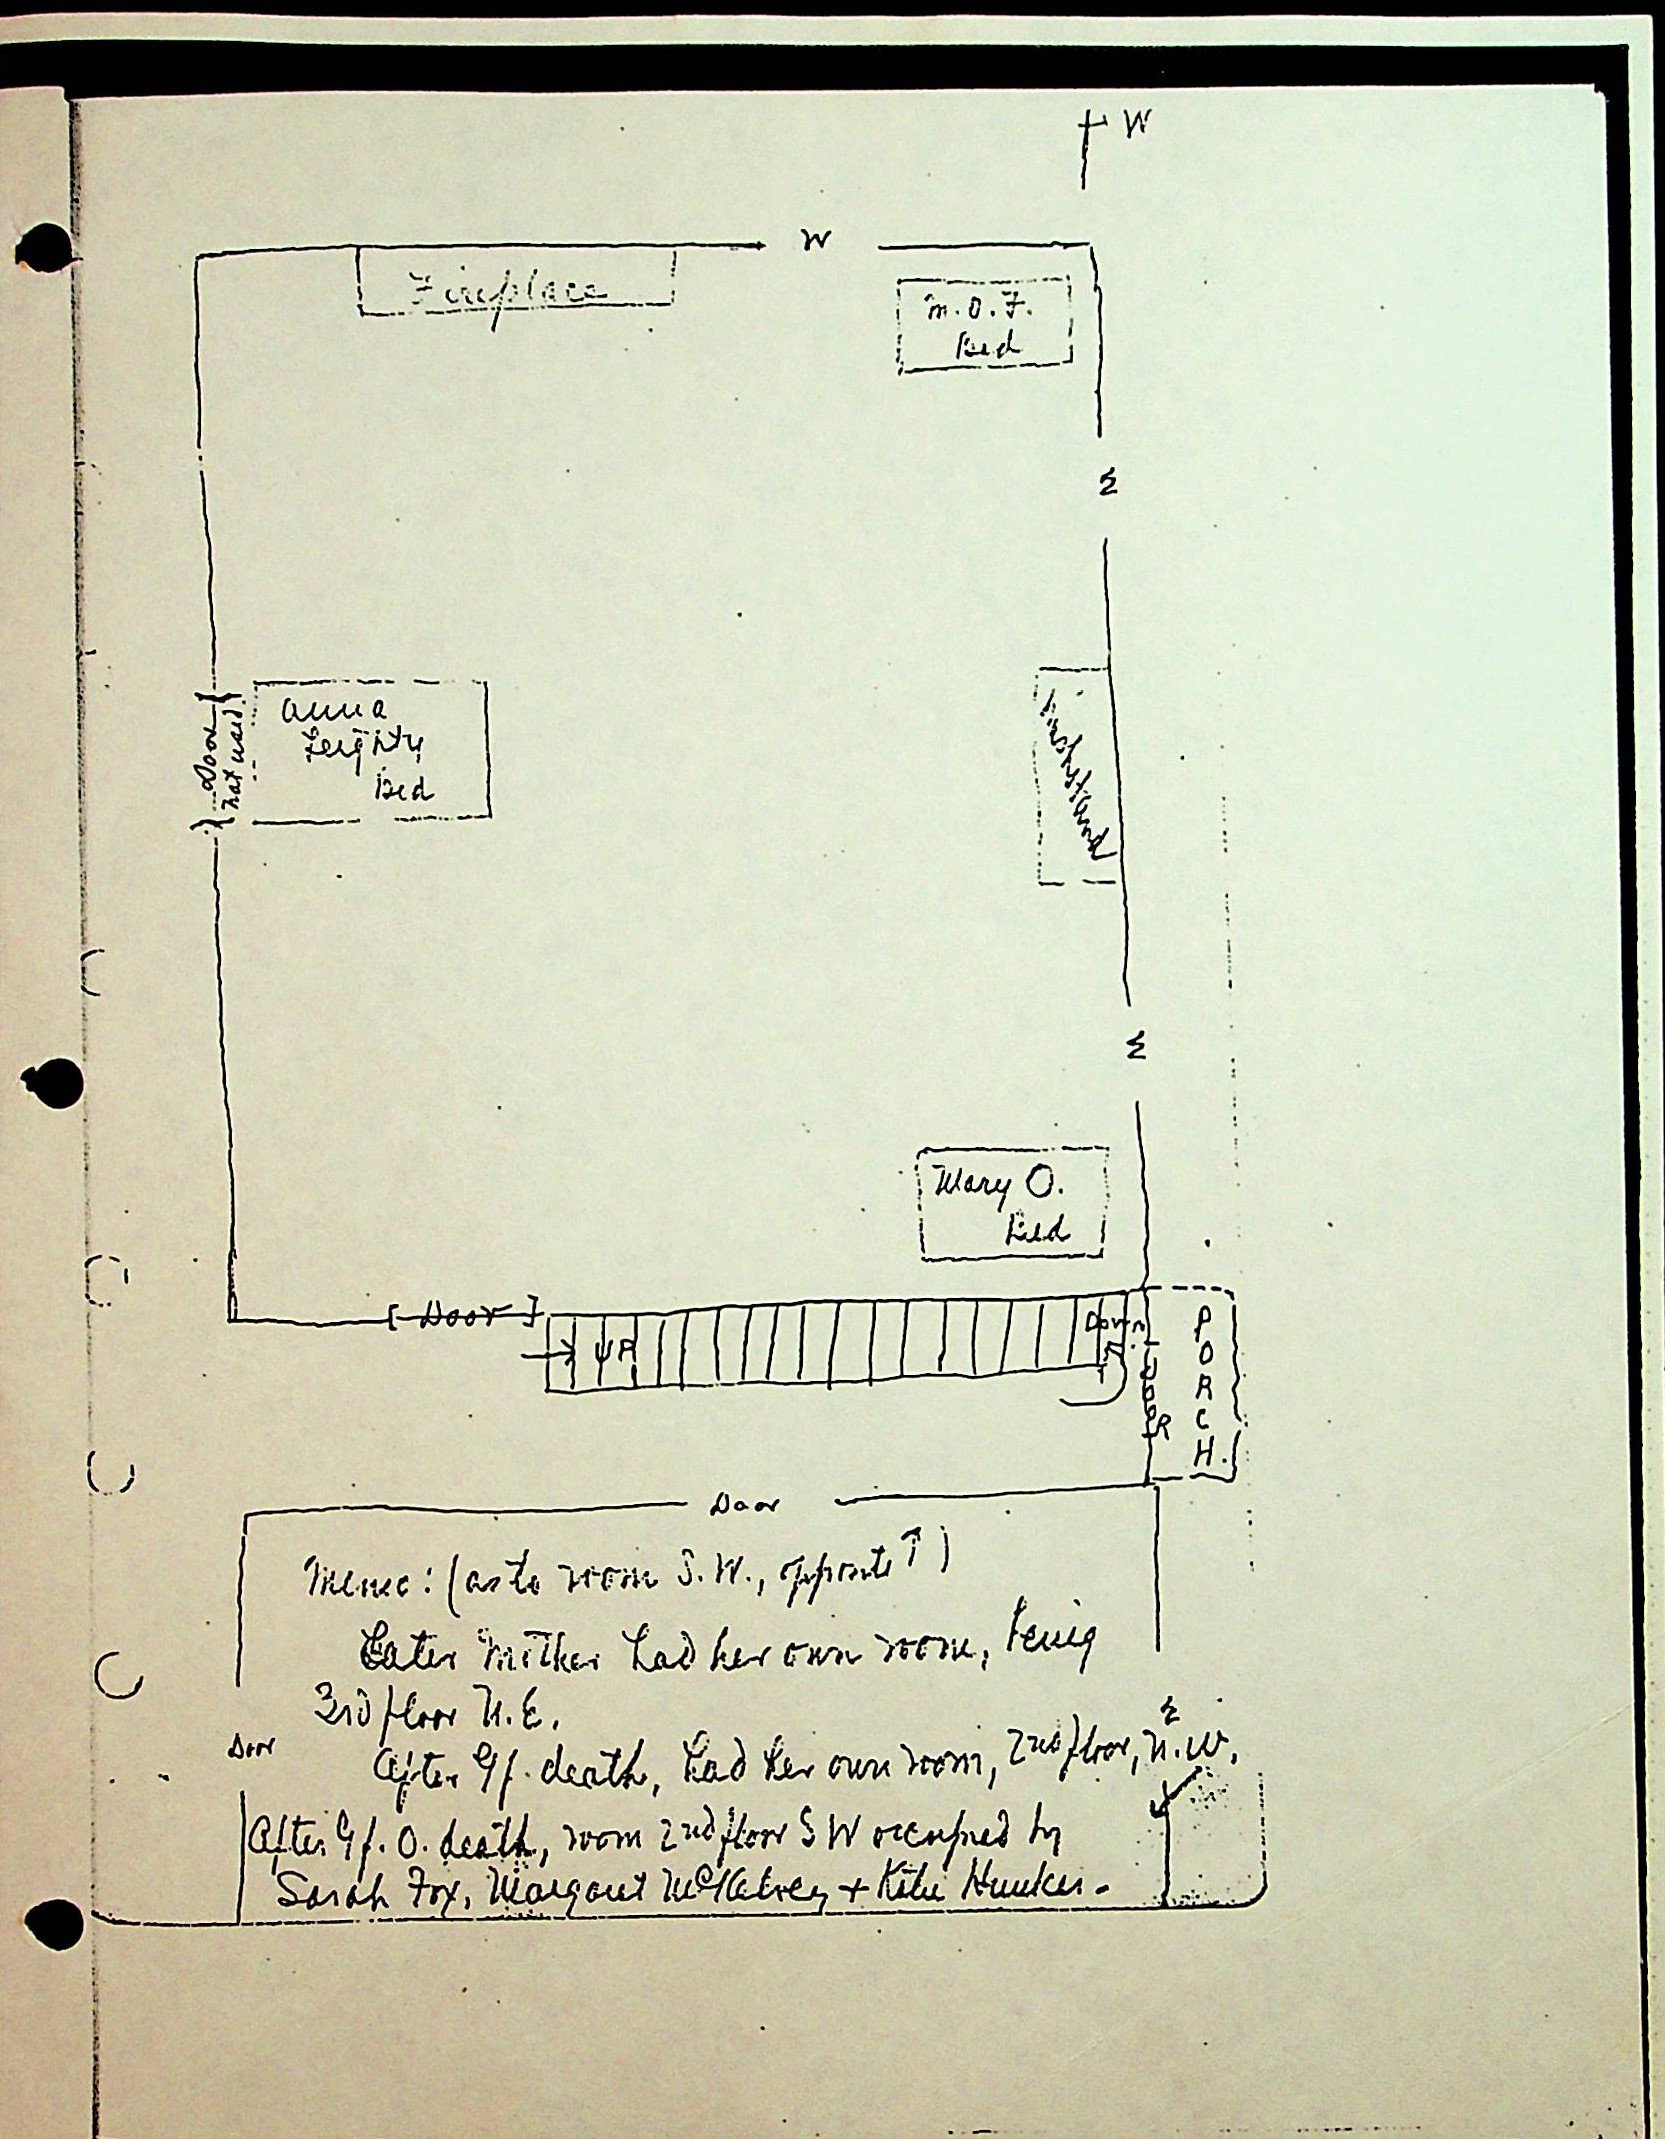 W
W
Fireplace
M.O.F.
Bed
W
Door
not used.
Anna
Bed
Washstand
W
Mary O.
Bed
Door
UP
Down
DOOR
PORCH.
Door
Memo: (as to room S.W., opposite ↑)
Later Mother had her own room, being
3rd floor N.E.
W
Door
After Gf. death, had her own room, 2nd floor, N.W.
After Gf. O. death, room 2nd floor SW occupied by
Sarah Fox, Margaret McKelvey + Katie Hunker.